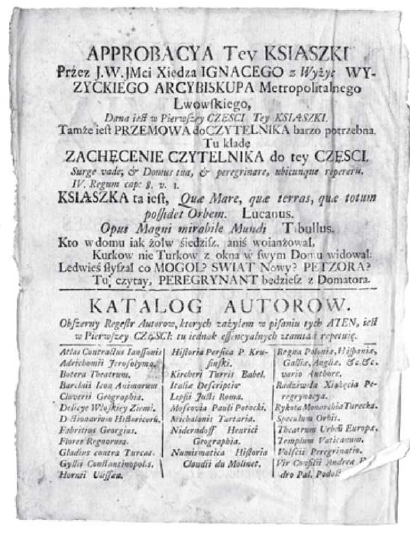 APPROBACYA Tey KSIASZKI
Przez J.W.JMci Xiedza IGNACEGO z Wyżyc WY-
ZYCKIEGO ARCYBISKUPA Metropolitalnego
Lwowskiego,
Dana iest w Pierwszy CZĘSCI Tey KSIASZKI.
Tamże iest PRZEMOWA do CZYTELNIKA barzo potrzebna.
Tu kładę
ZACHĘCENIE CZYTELNIKA do tey CZĘSCI.
Surge vade, & Domus tua, & peregrinare, ubicunque repereru.
IV. Regum cap: 8. v. 1.
KSIASZKA ta iest, Quæ Mare, quæ terras, quæ totum
possidet Orbem. Lucanus.
Opus Magni mirabile Mundi Tibullus.
Kto w domu iak żolw siedzisz, aniś woiażował,
Kurkow nie Turkow z okna w swym Domu widował:
Ledwieś słyszał co MOGOL? SWIAT Nowy? PETZORA?
Tu czytay, PEREGRYNANT będziesz z Domatora.
KATALOG AUTOROW.
Obszerny Regestr Autorow, ktorych zażyłem w pisaniu tych ATEN, iest
w Pierwszey CZĘSCI: tu iednak essencyalnych
Atlas Contractus Janssonii
Adrichomii Jerosolyma.
Botera Theatrum.
Barclaii Icon Animorum
Cluverii Geographia.
Delicye Włoskiey Ziemi.
Dictionarium Historicum.
Fabritius Georgius.
Flores Regnorum.
Gladius contra Turcas.
Gyllii Constantinopolis.
Hornii Ulissea.
Historia Persica P. Kru-
sinski.
Kircheri Turris Babel.
Italiæ Descriptio
Lipsii Justi Roma.
Moscovia Pauli Potocki.
Michalonis Tartaria.
Niderndorff Henrici
Geographia.
Numismatica Historia
Claudii du Molinet.
Regna Poloniæ, Hispaniæ,
Galliæ, Angliæ &c. &c.
vario Authore.
Radziwiła Xiążęcia Pe-
regrynacya.
Rykota Monarchia Turecka.
Speculum Orbis.
Theatrum Urbiū Europæ.
Templum Vaticanum.
Volscii Peregrinatio.
Vir Consilii Andreæ
dro Pal. Podol